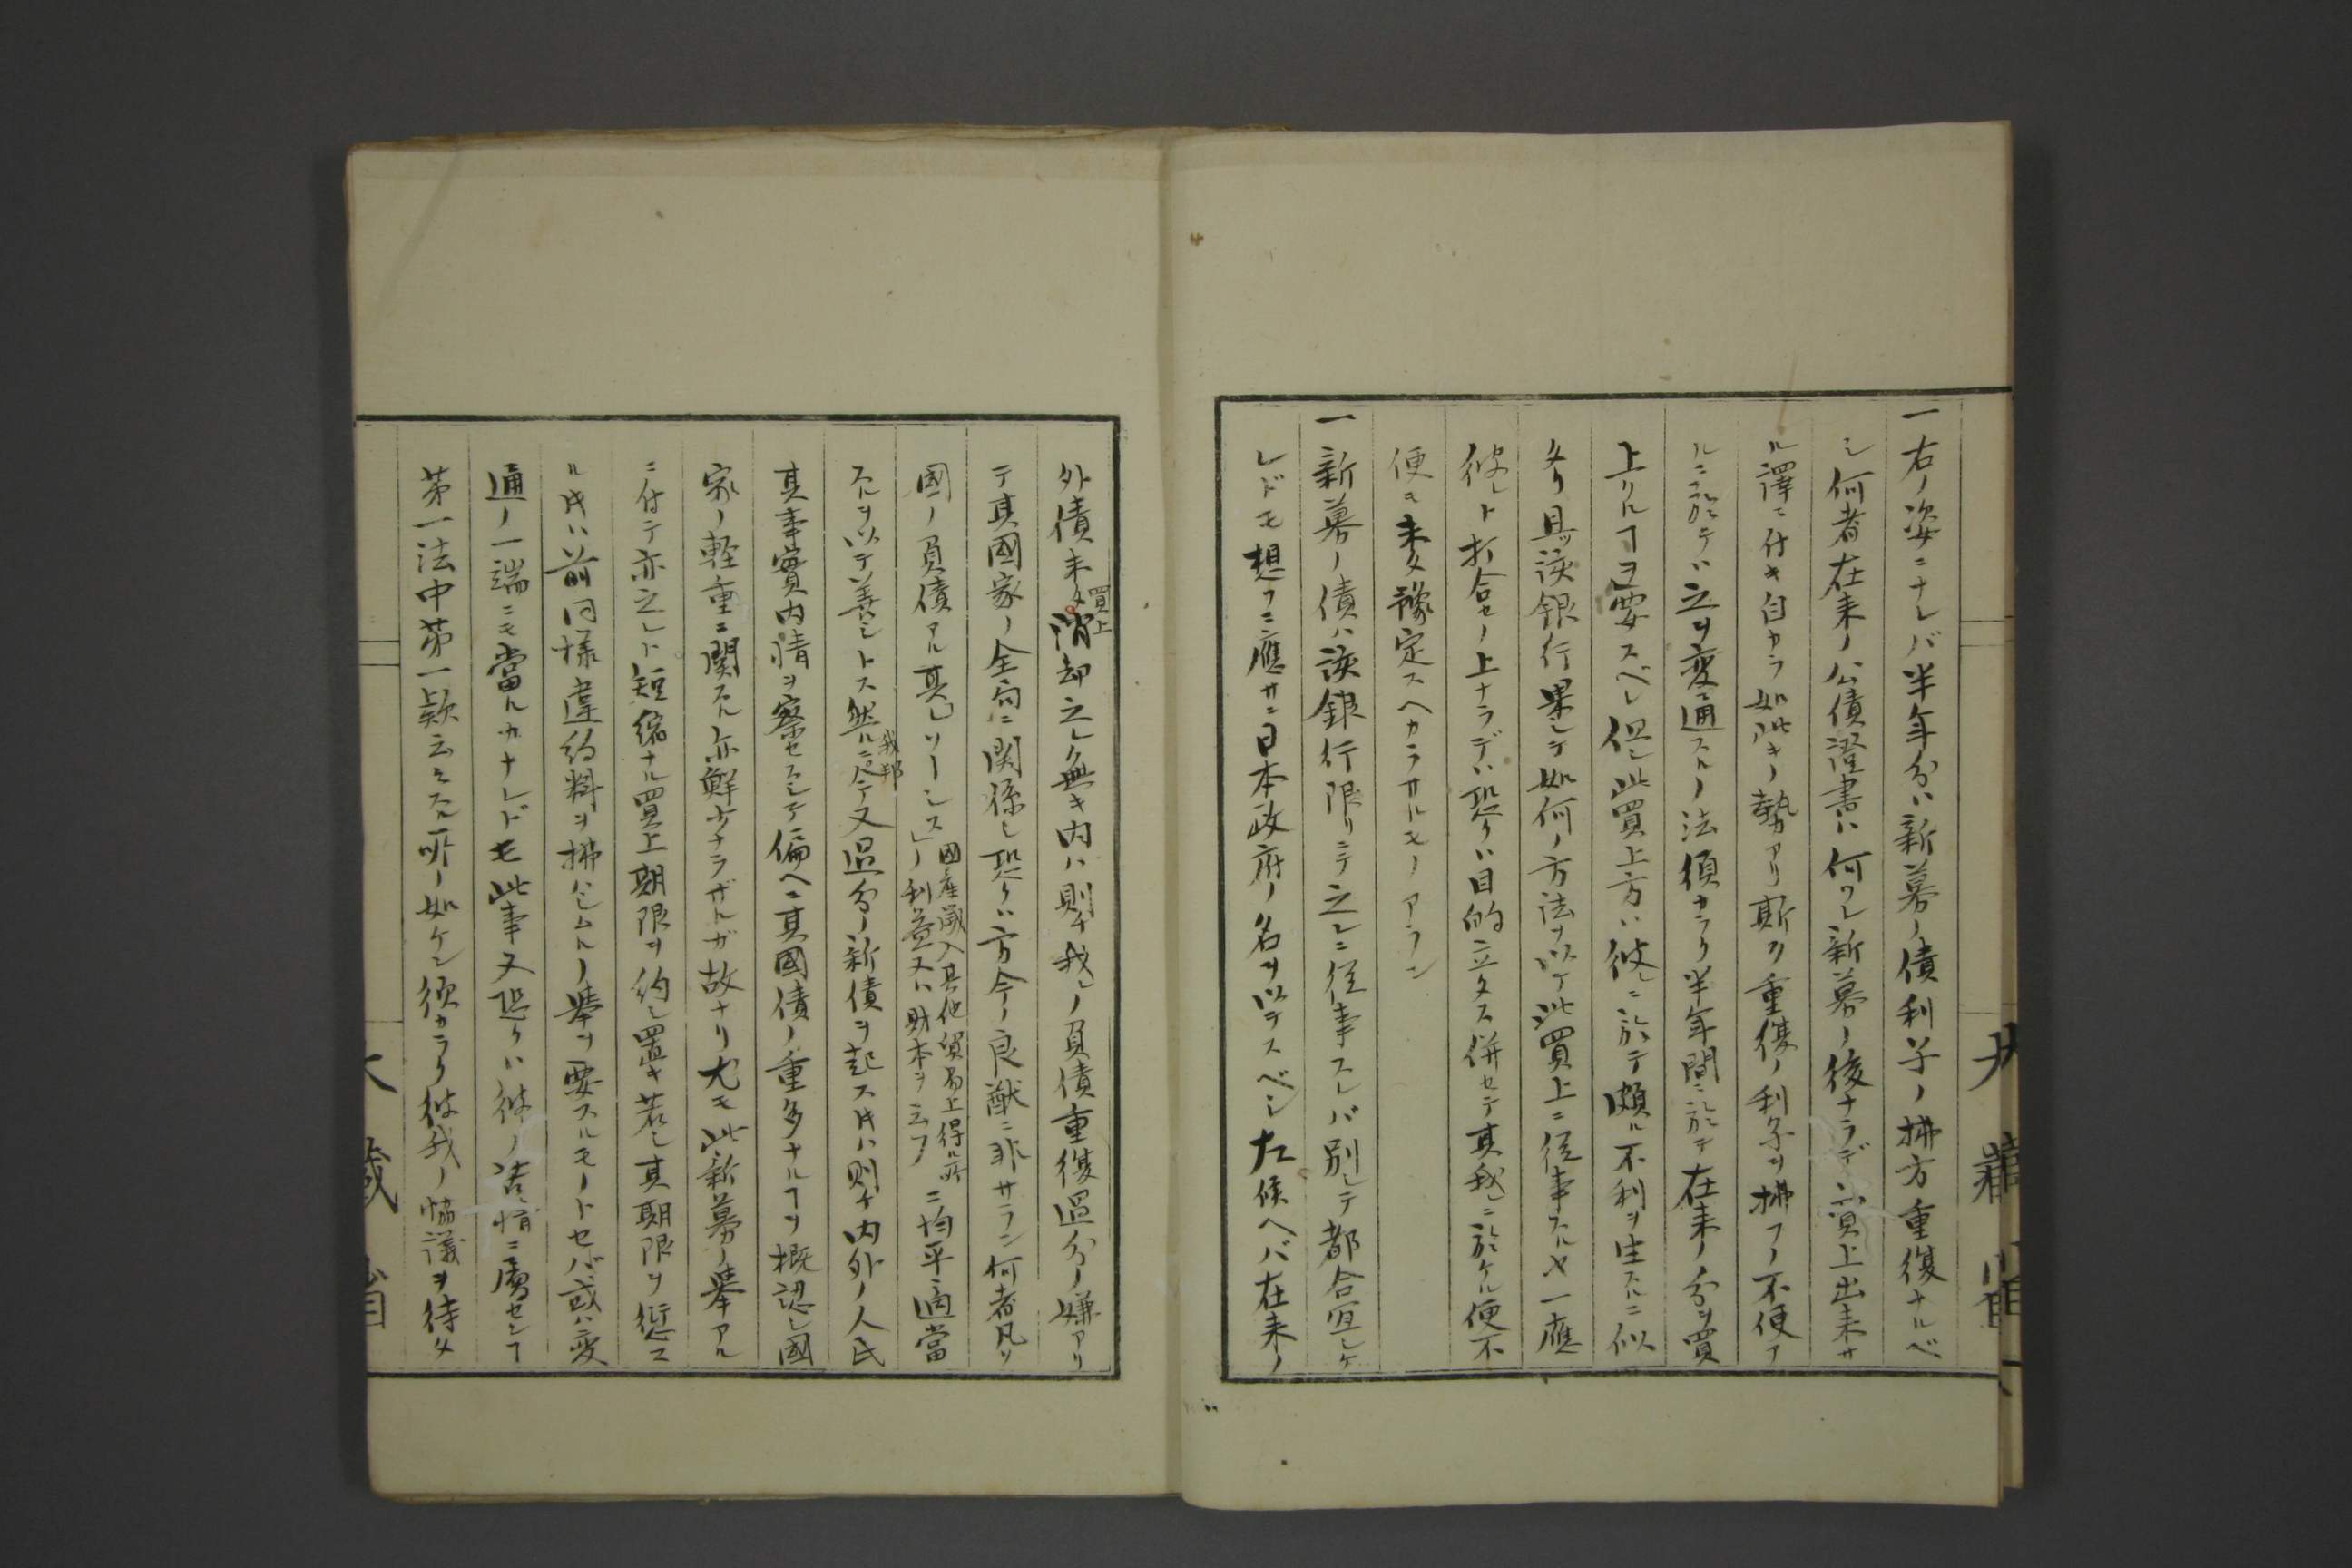 一右ノ姿ニナレバ半年分ハ新募ノ債利子ノ拂方重復ナルベ
シ何者在来ノ公債證書ハ何ワレ新募ノ後ナラデハ買上出来サ
ル譯ニ付キ自カラ如此キノ勢アリ斯ク重復ノ利子ヲ拂フノ不便ア
ルニ於テハ之ヲ変通スルノ法須カラク半年間ニ於テ在来ノ分ヲ買
上クルヿヲ要スベシ但シ此買上方ハ彼レニ於テ頗ル不利ヲ生スルニ似
タリ且ツ該銀行果シテ如何ノ方法ヲ以テ此買上ニ従事スルヤ一應
彼レト打合セノ上ナラデハ恐クハ目的立タス併セテ其我レニ於ケル便不
便モ未タ豫定スヘカラサルモノアラン
一新募ノ債ハ該銀行限リニテ之レニ従事スレバ別シテ都合宜シケ
レドモ想フニ應サニ日本政府ノ名ヲ以テスベシ左候ヘバ在来ノ
外債未タ買上消却之レ無キ内ハ則チ我レノ負債重復過分ノ嫌アリ
テ其國家ノ全局ニ関係シ恐クハ方今ノ良猷ニ非サラン何者凡ソ
國ノ負債アル其レ「ソールシス」ノ國産歳入其他貿易上得ル所
利益又ハ財本ヲ云フニ均平適當
スルヲ以テ善シトス然ルニ我邦今又過分ノ新債ヲ起ス片ハ則チ内外ノ人民
其事實内情ヲ察セスシテ偏ヘニ其國債ノ重多ナルヿヲ概認シ國
家ノ軽重ニ関スル亦鮮少ナラザルガ故ナリ尤モ此新募ノ舉アル
ニ付テ亦之レト短縮ナル買上期限ヲ約シ置キ若シ其期限ヲ愆ス
ル片ハ前同様違約料ヲ拂ハシムルノ舉ヲ要スルモノトセバ或ハ変
通ノ一端ニモ當ルカナレドモ此事又恐クハ彼ノ苦情ニ屬センヿ
第一法中第一款云々スル所ノ如ケン須カラク彼我ノ協議ヲ待タ
大藏省